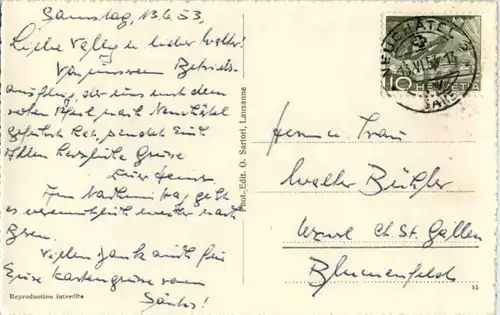 Samstag, 13.6.53,
Liebe Valley u. lieber Walter!
Von unserem Betriebs-
ausflug, der uns mit dem
roten Pfeil nach Neuchâtel
geführt hat, sendet Euch
Allen herzliche Grüsse
Euer
Am Nachmittag geht
es vermutlich weiter nach
Bern.
Vielen Dank auch für
Eure Kartengrüsse vom
Säntis!
Reproduction interdite
Phot.-Edit. O. Sartori, Lausanne
NEUCHATEL
10 HELVETIA
Herrn u. Frau
Walter Bühler
Uzwil Ct. St. Gallen
Blumenfeld